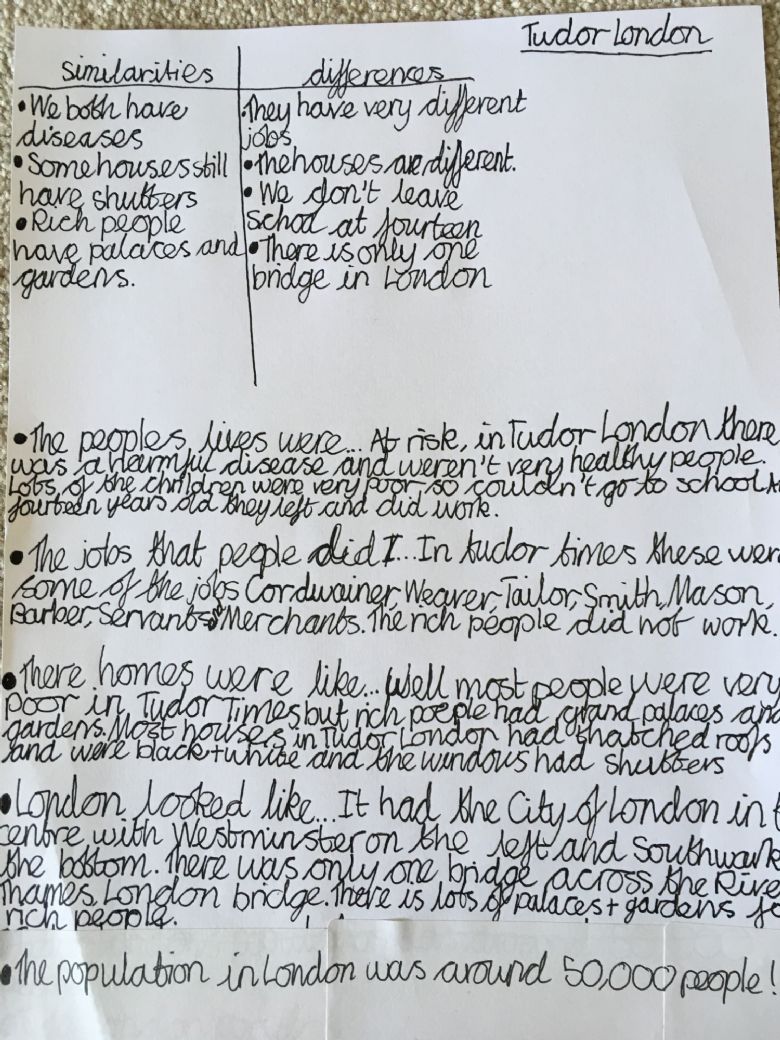 Tudor London
similarities
• We both have
diseases
• Some houses still
have shutters
• Rich people
have palaces and
gardens.
differences
• They have very different
jobs
• The houses are different.
• We don't leave
school at fourteen
• There is only one
bridge in London
• The peoples lives were... At risk, in Tudor London there
was a harmful disease and weren't very healthy people.
Lots of the children were very poor so couldn't go to school. At
fourteen years old they left and did work.
• The jobs that people did I... In tudor times these wer
some of the jobs Cordwainer, Weaver, Tailor, Smith, Mason,
Barber, Servants, Merchants. The rich people did not work.
• There homes were like... Well most people were very
poor in Tudor Times but rich poeple had grand palaces and
gardens. Most houses in Tudor London had thatched roofs
and were black + white and the windows had shutters
• London looked like... It had the City of London in t
centre with Westminster on the left and Southwark
the bottom. There was only one bridge across the River
Thames, London bridge. There is lots of palaces + gardens fo
rich people.
• The population in London was around 50,000 people!